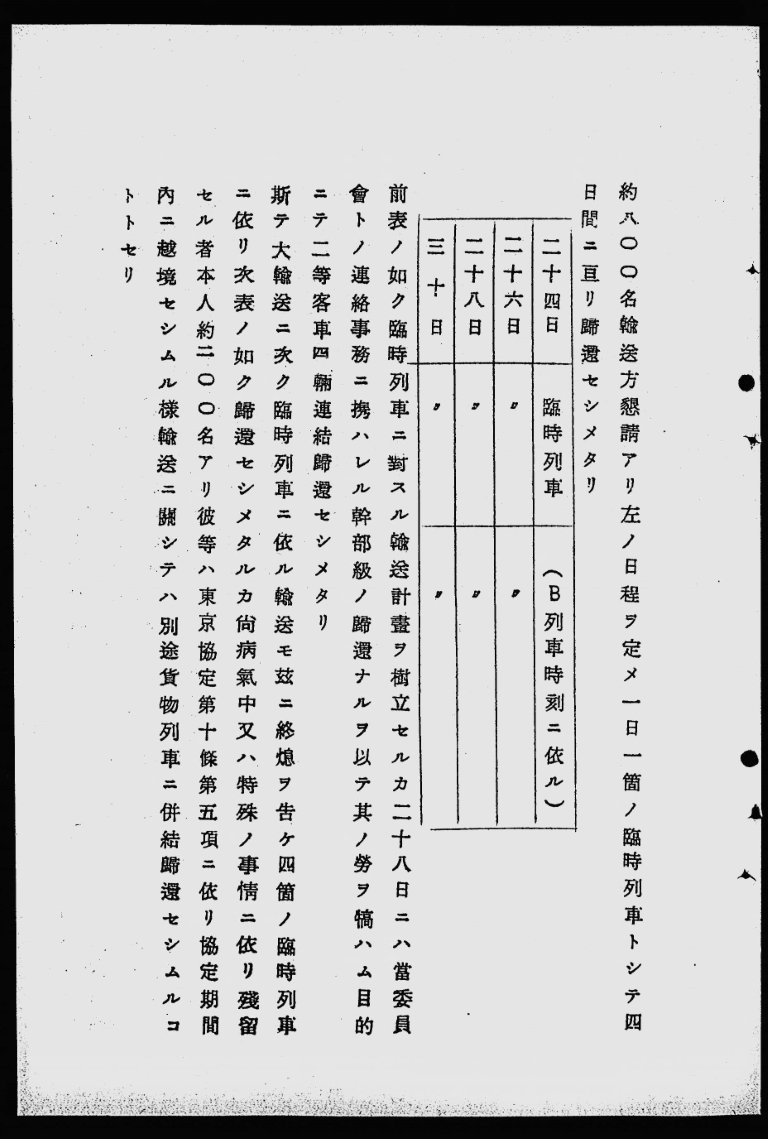 約八〇〇名輸送方懇請アリ左ノ日程ヲ定メ一日一箇ノ臨時列車トシテ四
日間ニ亘リ歸還セシメタリ
二十四日 臨時列車 (B列車時刻ニ依ル)
二十六日 〃 〃
二十八日 〃 〃
三十日 〃 〃
前表ノ如ク臨時列車ニ對スル輸送計畫ヲ樹立セルカ二十八日ニハ當委員
會トノ連絡事務ニ携ハレル幹部級ノ歸還ナルヲ以テ其ノ勞ヲ犒ハム目的
ニテ二等客車四輛連結歸還セシメタリ
斯テ大輸送ニ次ク臨時列車ニ依ル輸送モ茲ニ終熄ヲ告ケ四箇ノ臨時列車
ニ依リ次表ノ如ク歸還セシメタルカ尙病氣中又ハ特殊ノ事情ニ依リ殘留
セル者本人約二〇〇名アリ彼等ハ東京協定第十條第五項ニ依リ協定期間
內ニ越境セシムル樣輸送ニ關シテハ別途貨物列車ニ併結歸還セシムルコ
トトセリ